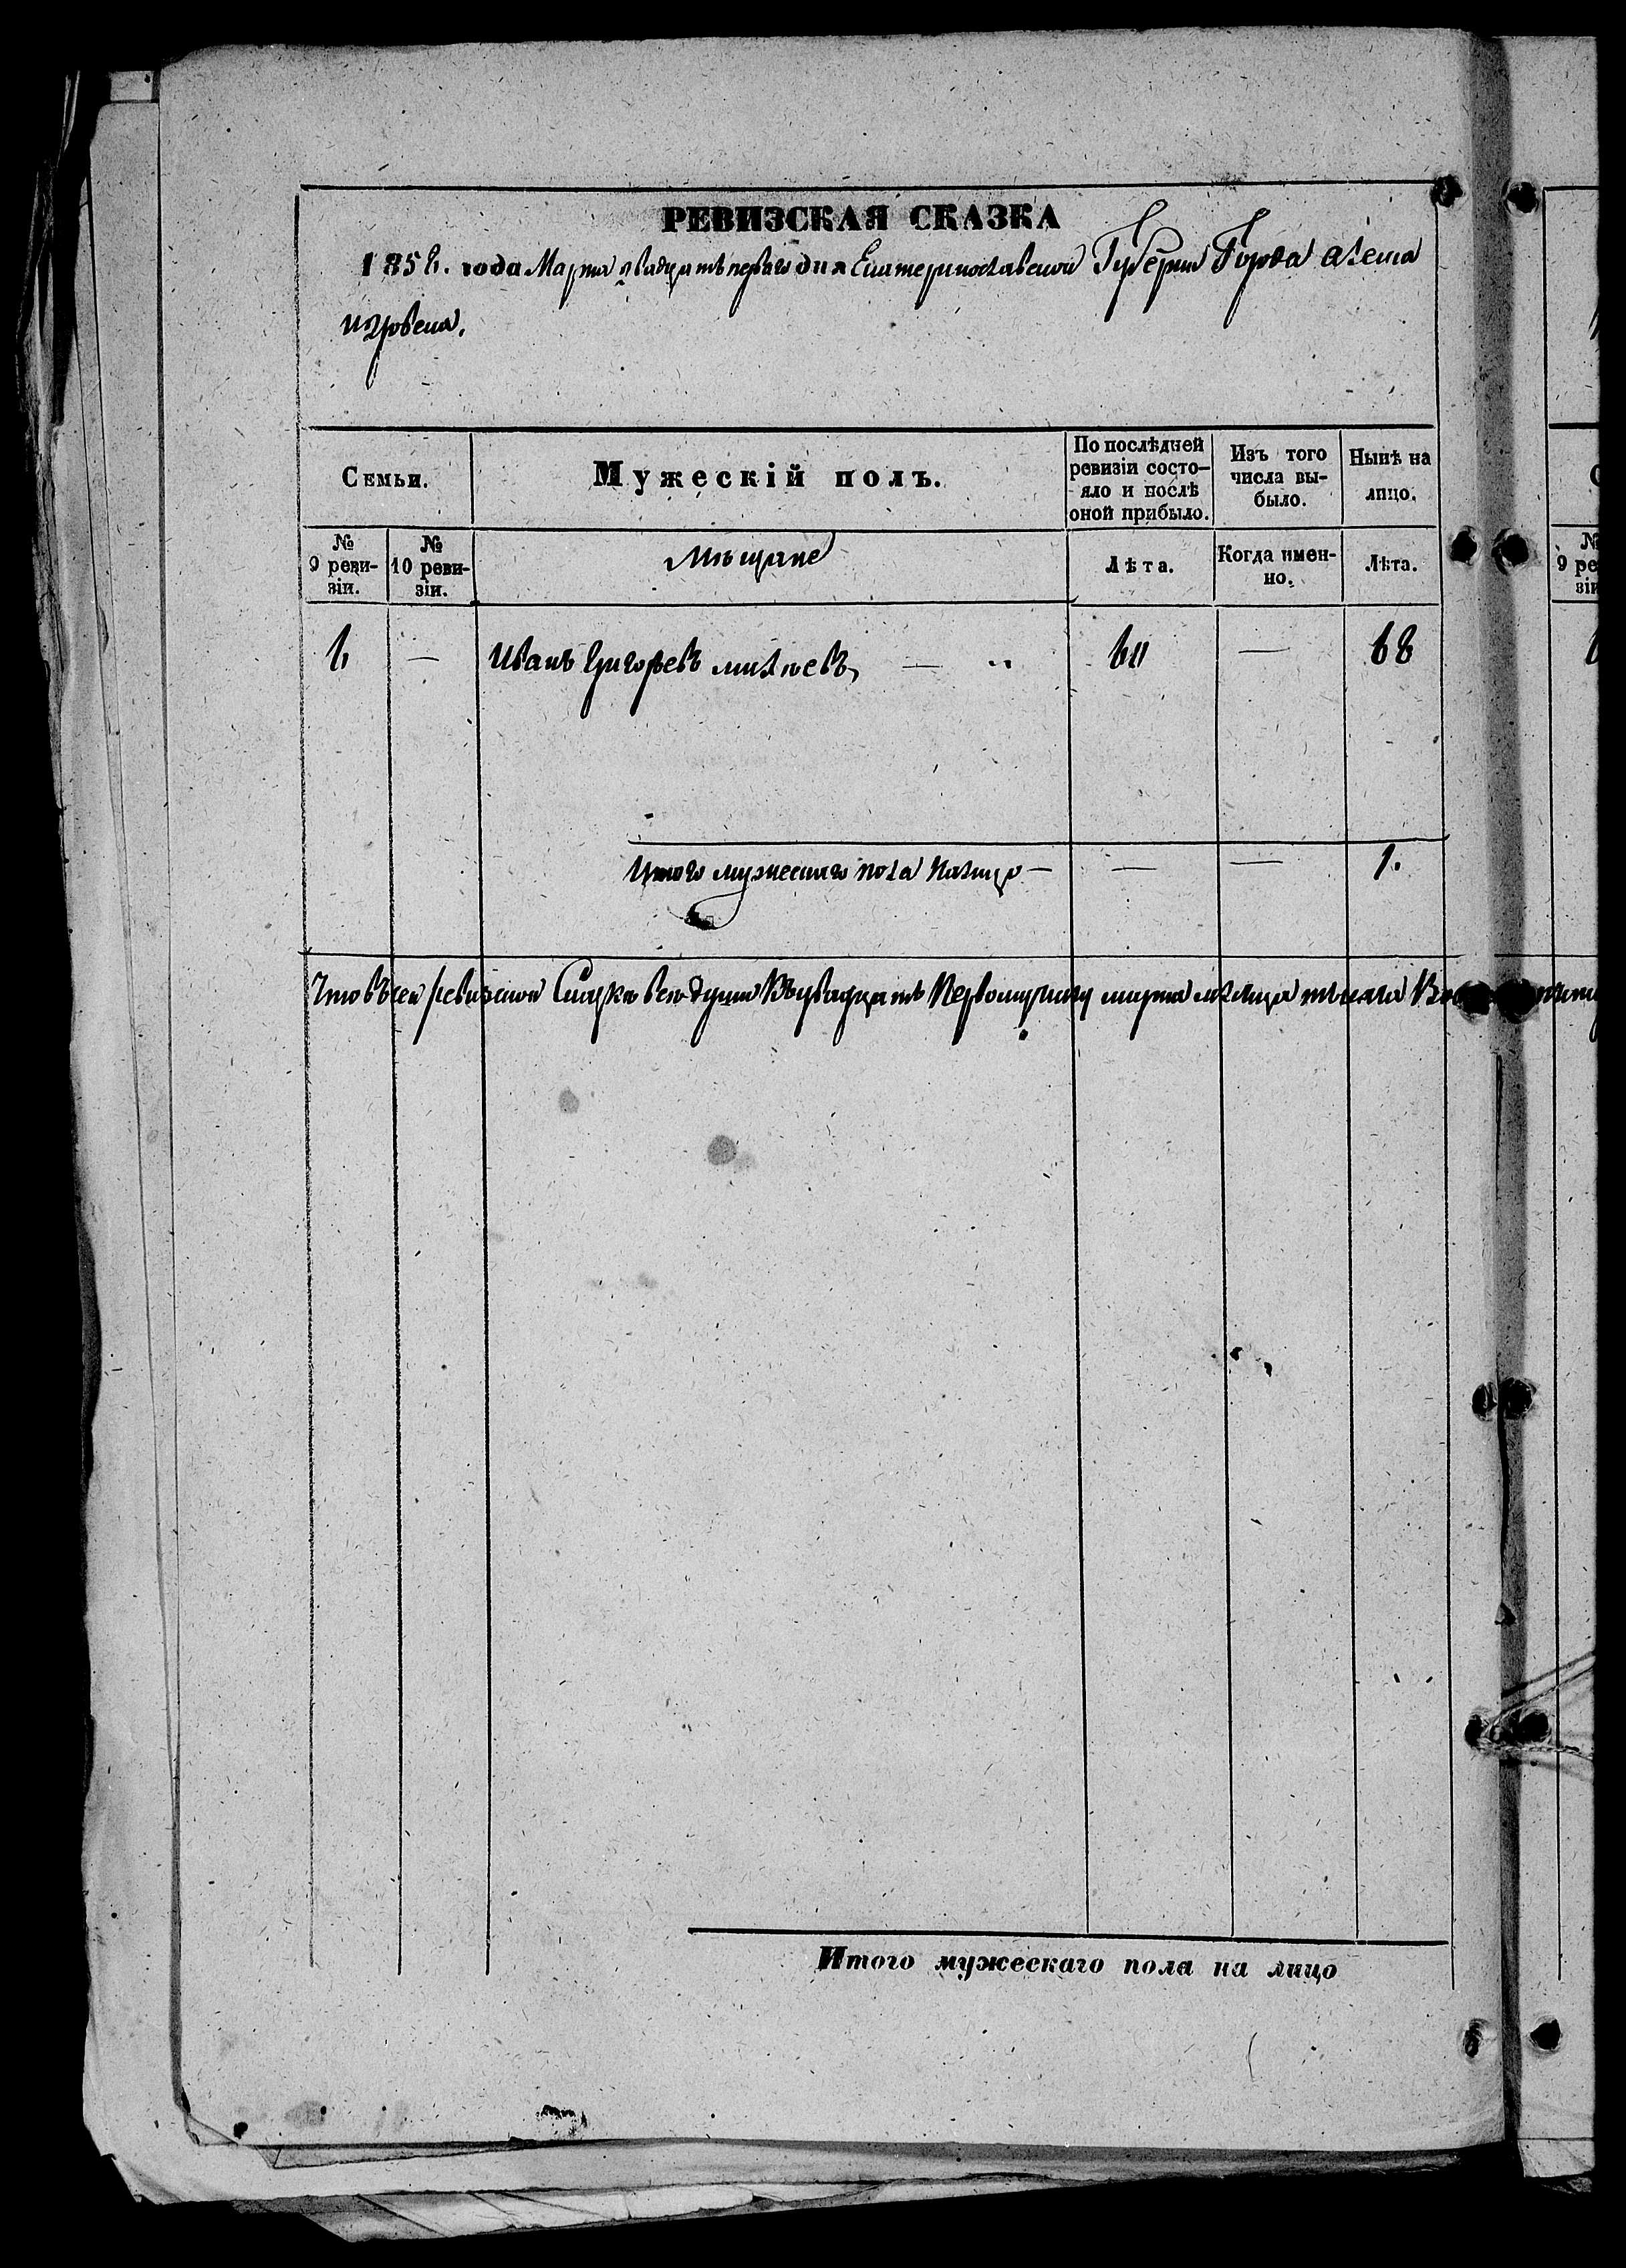 РЕВИЗСКАЯ СКАЗКА
1858. года Марта двадцать перваго дня Екатеринославской Губернии Города Алекса
Семьи.
Мужескій полъ.
По послѣдней ревизіи состо-
яло и послѣ оной прибыло.
Изъ того числа вы-
было.
Нынѣ на лицо.
№ 9 реви-
зіи.
№ 10 реви-
зіи.
Мѣщане
Лѣта.
Когда имен-
но.
Лѣта.
— Иванъ Григорьевъ — — 68
Итого мужескаго пола налицо — — — 1.
Что въ сей ревизской Сказке все души Къ двадцать Первому числу марта месяца
Итого мужескаго пола на лицо
№
9 ре
зіи